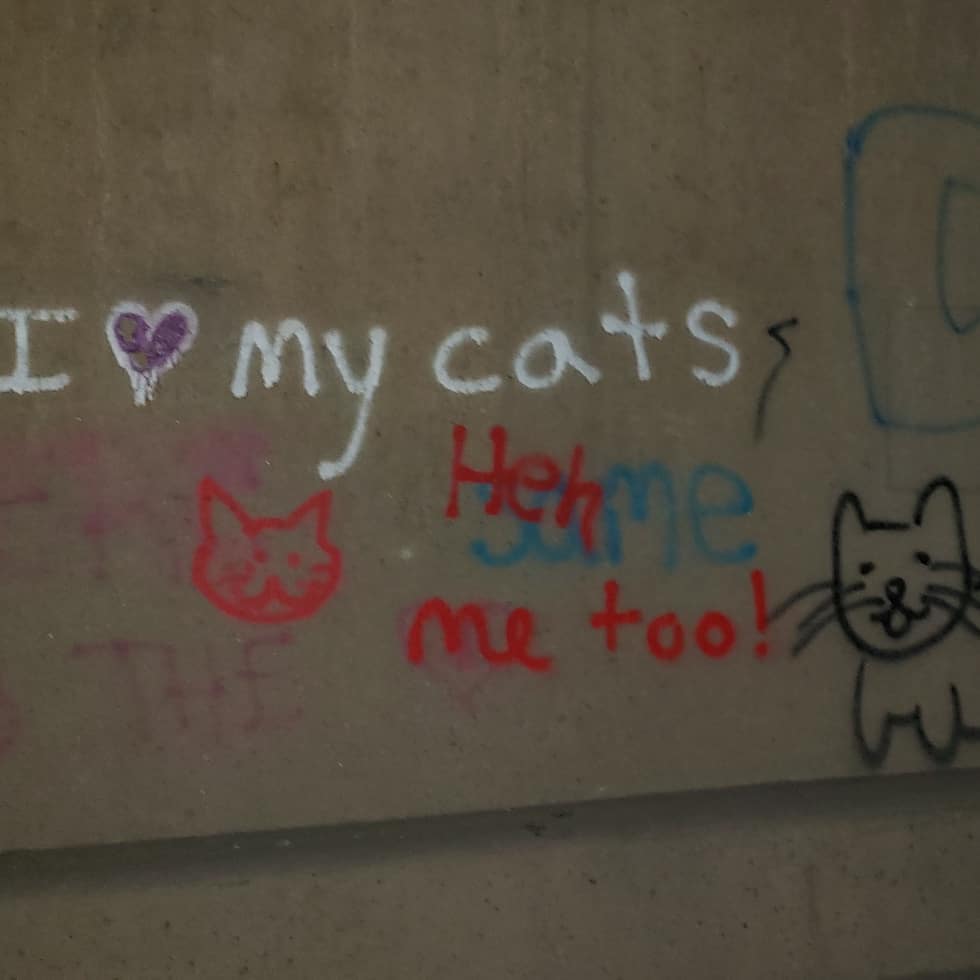 I ♥ my cats
Heh
same
me too!
THE